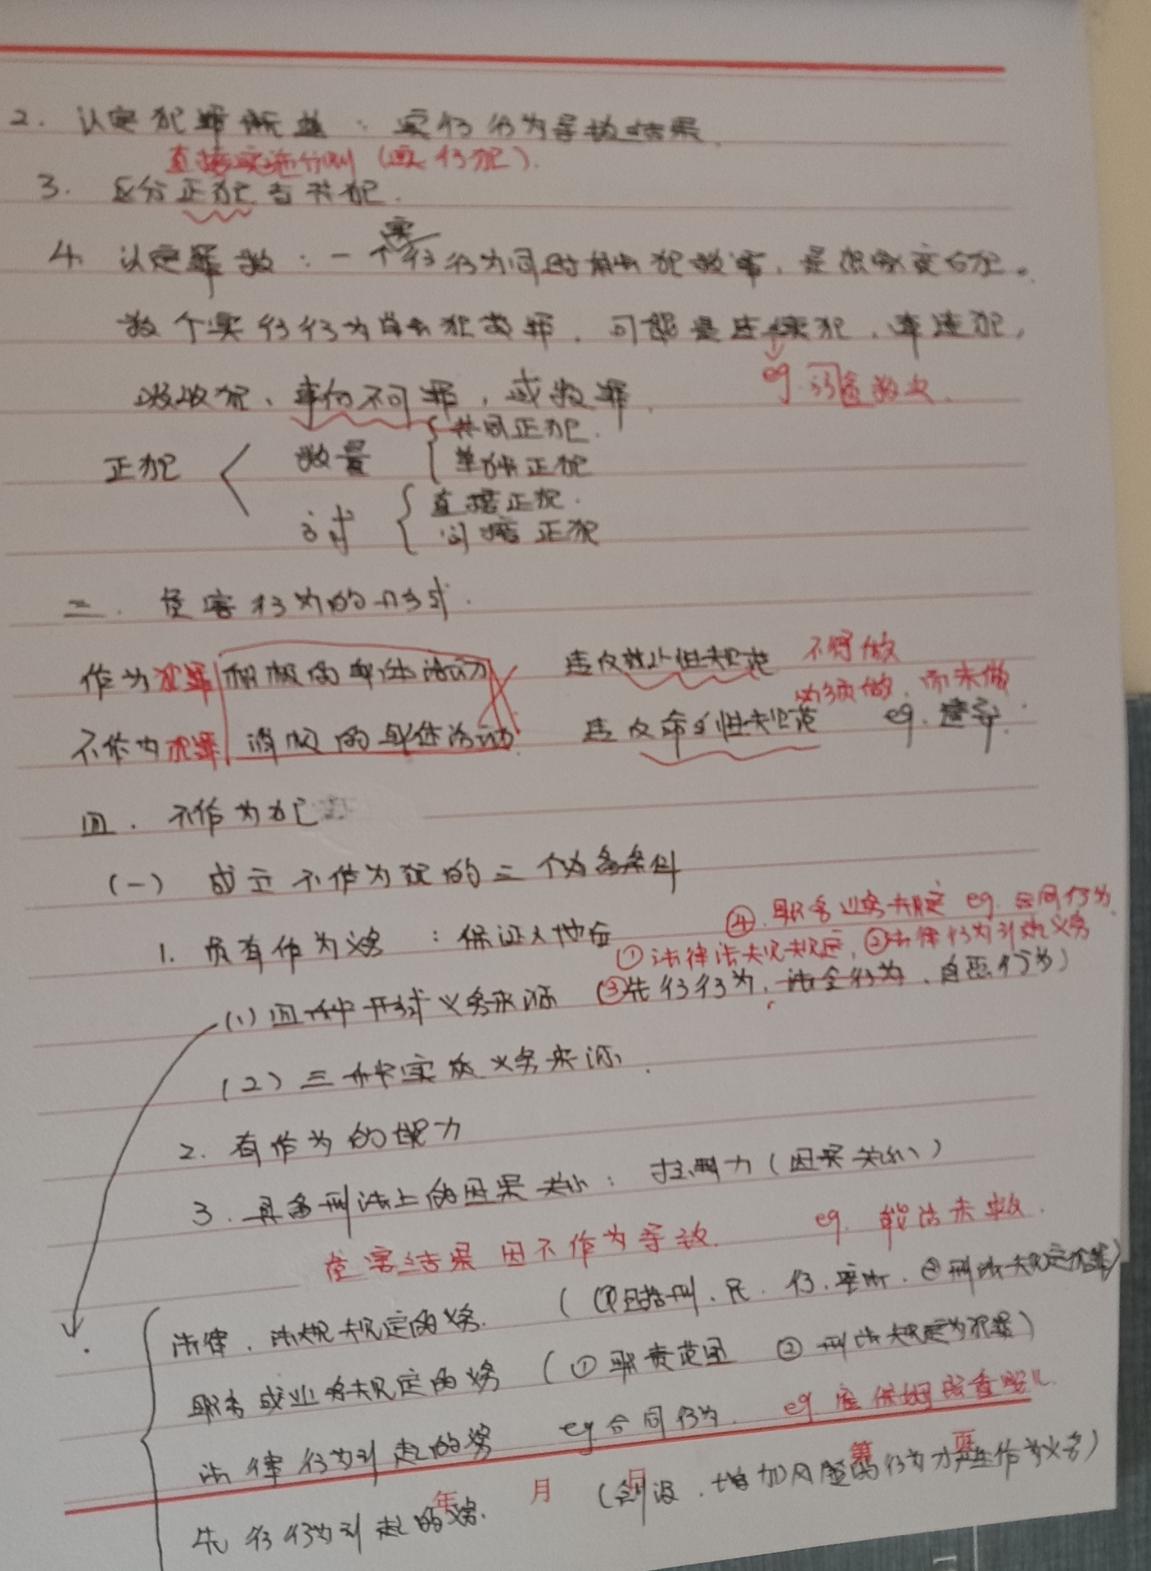 2. 认定犯罪既遂：实行行为导致结果.
直接实施行为 (实行犯).
3. 区分正犯与共犯.
4. 认定罪数：一个实行行为同时触犯数罪，是想象竞合犯。
数个实行行为触犯数罪，可能是连续犯，牵连犯，
eg. 盗数次.
吸收犯、事后不可罚，或数罪.
正犯
数量
共同正犯.
单独正犯
方式
直接正犯.
间接正犯
三. 危害行为的形式.
作为犯罪 积极的身体活动 违反禁止性规范 不得做
必须做，而未做
不作为犯罪 消极的身体活动 违反命令性规范 eg. 遗弃.
四. 不作为犯
(一) 成立不作为犯的三个必备条件
④ 职务业务规定 eg. 合同行为
1. 负有作为义务：保证人地位
①法律法规规定, ②法律行为引起义务
(1) 四种形式义务来源 (③先行行为, 法令行为, 自愿行为)
(2) 三种实质义务来源.
2. 有作为的能力
3. 具备刑法上的因果关系： (因果关系)
危害结果因不作为导致. eg. 能活未救.
法律、法规规定的义务. (①包括刑、民、行、 ②刑法规定犯罪)
职务或业务规定的义务 (①职责范围 ②刑法规定为犯罪)
法律行为引起的义务 eg 合同行为. eg 雇保姆照看婴儿.
第 页
年 月 日
先行行为引起的义务. (创设、增加风险的行为才产生作为义务)